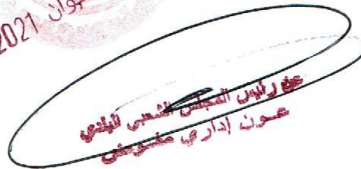 جوان 2021
عن رئيس المجلس الشعبي البلدي
عون إداري مفوض